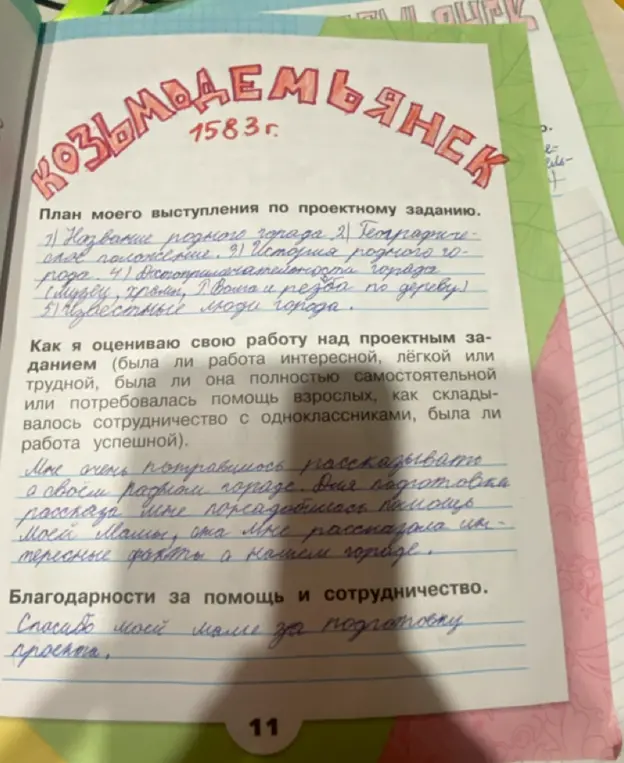 КОЗЬМОДЕМЬЯНСК
1583 г.
План моего выступления по проектному заданию.
1) Название родного города 2) Географиче-
ское положение. 3) История родного го-
рода 4) Достопримечательности города
(музеи, храмы, р. Волга и резьба по дереву)
5) Известные люди города.
Как я оцениваю свою работу над проектным за-
данием (была ли работа интересной, лёгкой или
трудной, была ли она полностью самостоятельной
или потребовалась помощь взрослых, как склады-
валось сотрудничество с одноклассниками, была ли
работа успешной).
Мне очень понравилось рассказывать
о своём родном городе. Для подготовки
рассказа мне понадобилась помощь
моей мамы, она мне рассказала ин-
тересные факты о нашем городе.
Благодарности за помощь и сотрудничество.
Спасибо моей маме за подготовку
проекта.
11